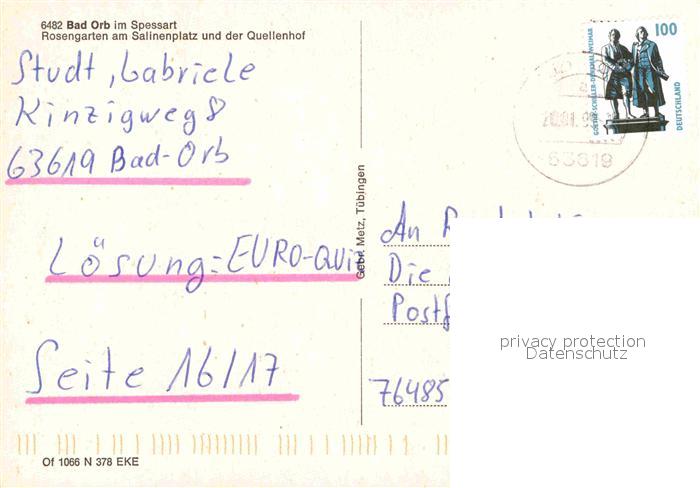 6482 Bad Orb im Spessart
Rosengarten am Salinenplatz und der Quellenhof
Studt, Gabriele
Kinzigweg 8
63619 Bad-Orb
Lösung: EURO-Quiz
Seite 16/17
Of 1066 N 378 EKE
Gebr. Metz, Tübingen
100
GOETHE-SCHILLER-DENKMAL WEIMAR
DEUTSCHLAND
63619
An
Die
76485
privacy protection
Datenschutz